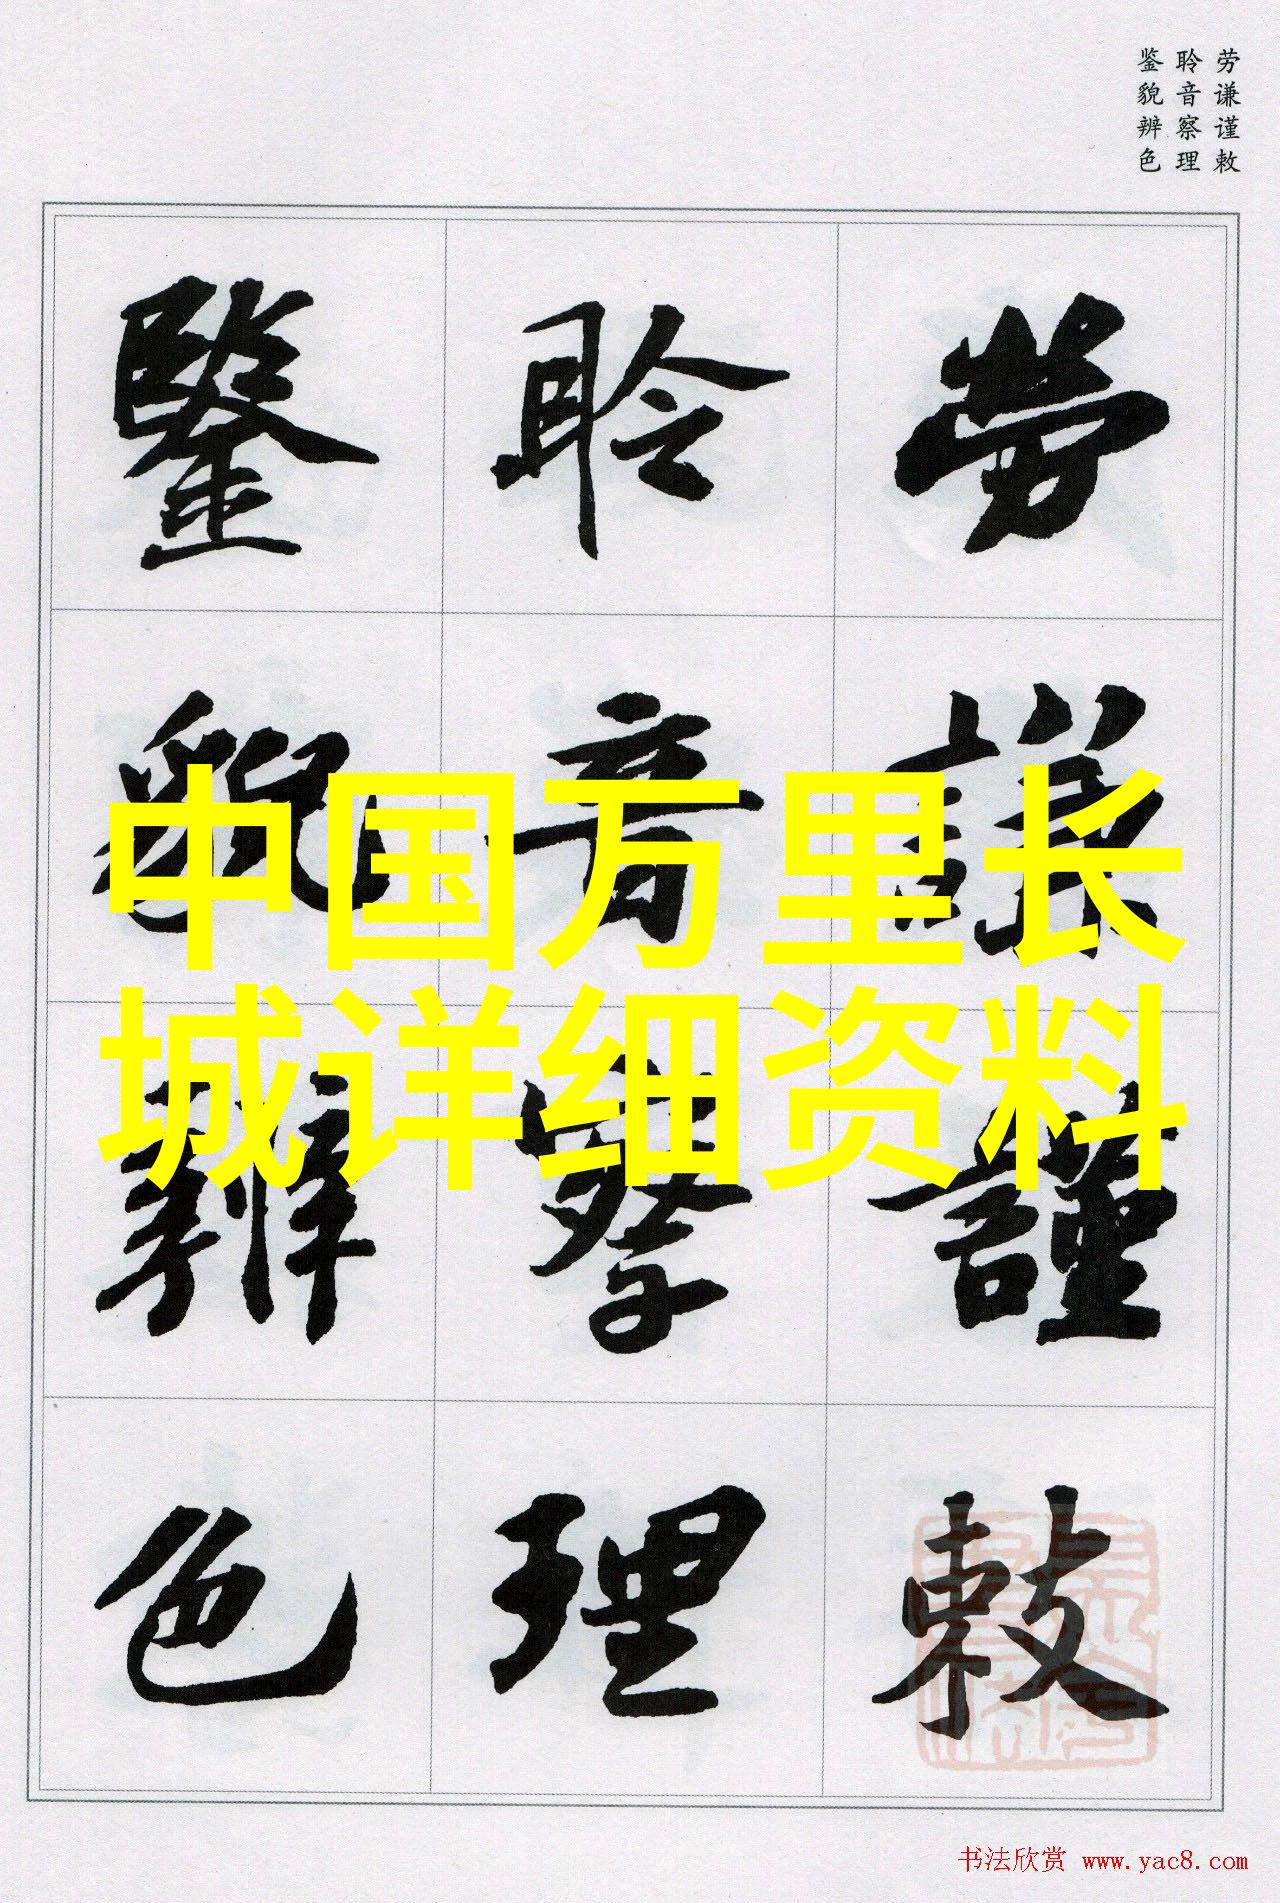 劳谦谨敕
聆音察理
鉴貌辨色
勞謙謹敕
聆音察理
鑒貌辨色
中国万里长
城详细资料
书法欣赏 www.yac8.com